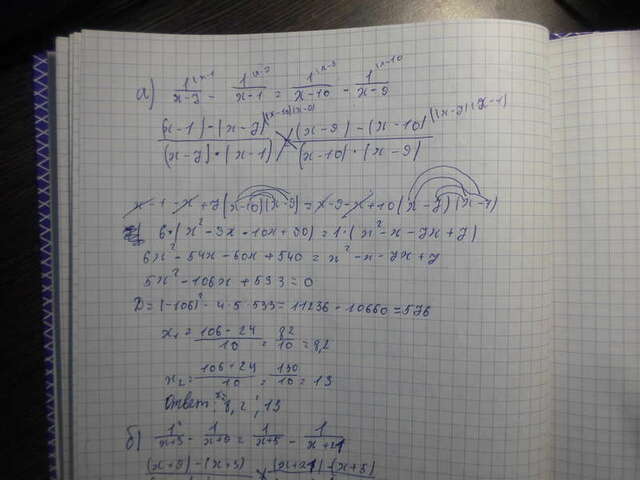 а) 1^(x-1/x-7 - 1^(x-7/x-1 = 1^(x-9/x-10 - 1^(x-10/x-9
(x-1)-(x-7)^(x-10)(x-9)/(x-7)·(x-1) = (x-9)-(x-10)^(x-7)(x-1)/(x-10)·(x-9)
x-1-x+7(x-10)(x-9)=x-9-x+10(x-7)(x-1)
6·(x²-9x-10x+90)=1·(x²-x-7x+7)
6x²-54x-60x+540=x²-x-7x+7
5x²-106x+533=0
D=(-106)²-4·5·533=11236-10660=576
x₁=106-24/10=82/10=8,2
x₂=106+24/10=130/10=13
Ответ: 8,2; 13
б) 1/x+3 - 1/x+9 = 1/x+5 - 1/x+21
(x+9)-(x+3) (x+21)-(x+5)